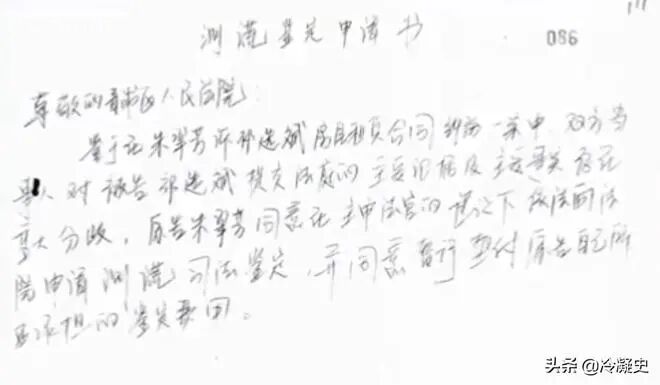 测谎鉴定申请书
086
尊敬的青羊区人民法院:
鉴于在朱翠芳诉祁选斌房屋租赁合同纠纷一案中,双方当
事人对被告祁选斌提交法庭的主要证据及主要事实存在
重大分歧,原告朱翠芳同意在主审法官的建议下依法向法
院申请测谎司法鉴定,并同意暂行垫付原告自己所
应承担的鉴定费用。
头条 @冷凝史